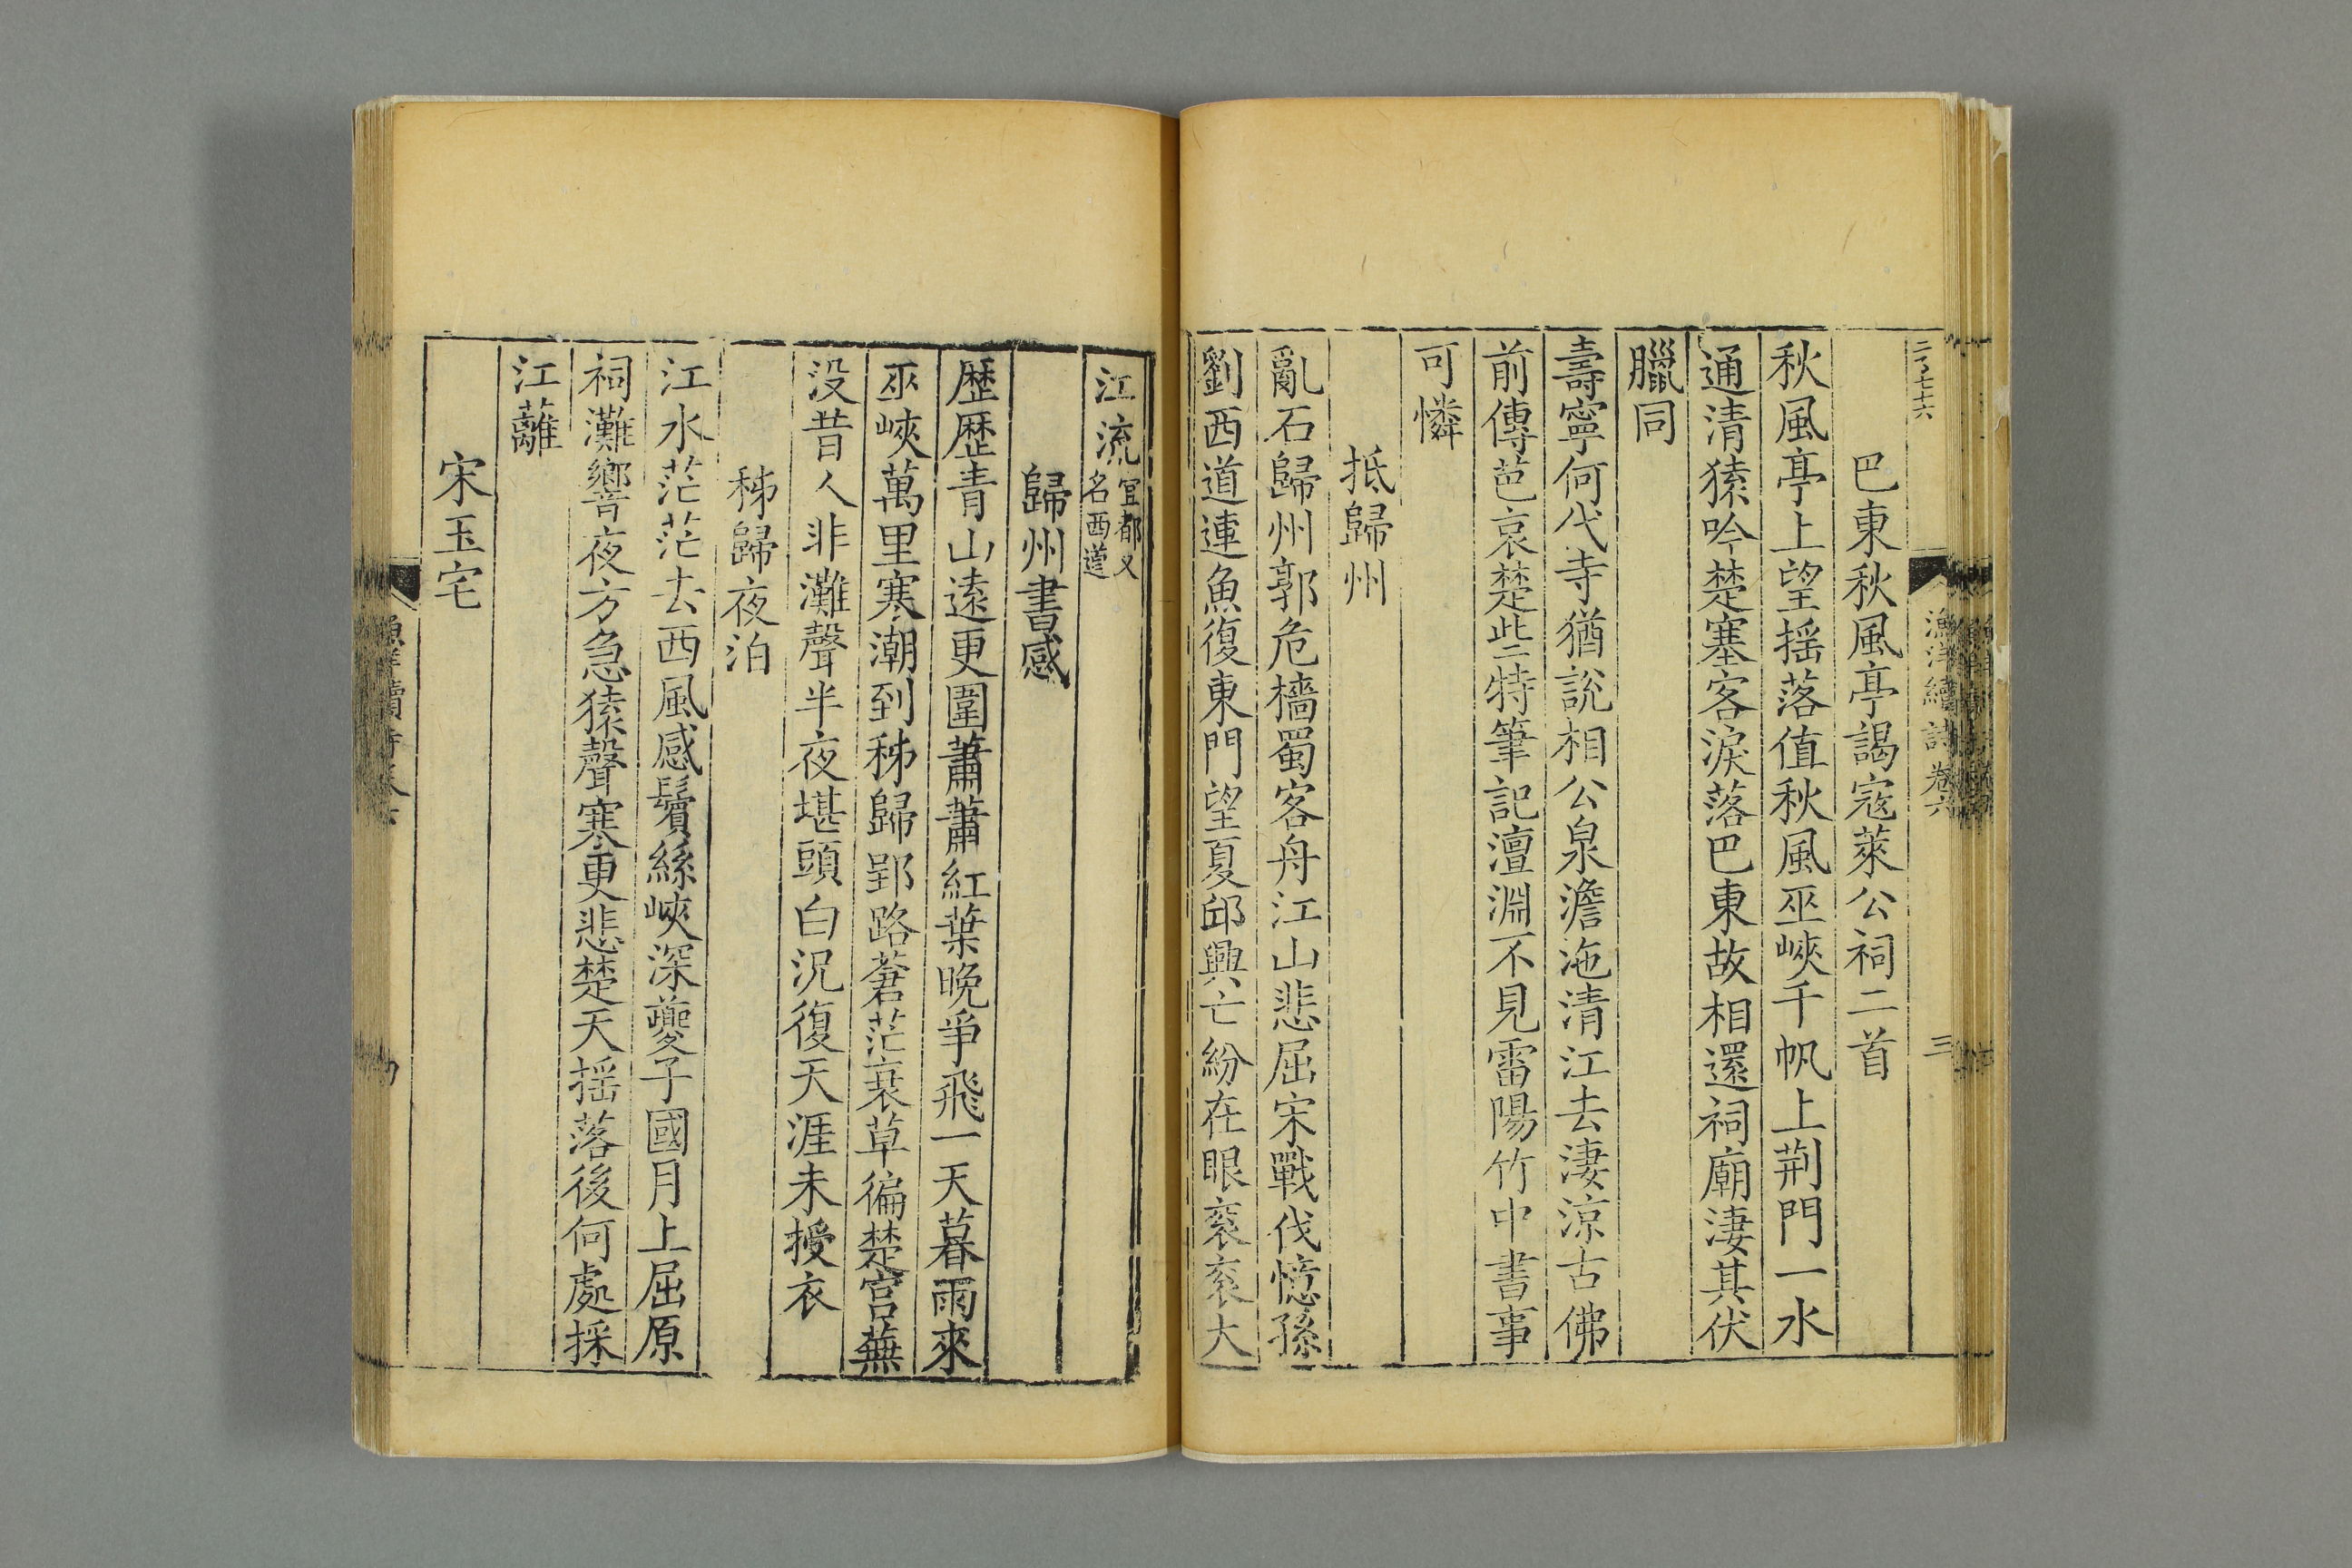 巴東秋風亭謁寇萊公祠二首
秋風亭上望揺落值秋風巫峽千帆上荆門一水
通清猿吟楚塞客淚落巴東故相還祠廟淒其伏
臘同
壽寧何代寺猶說相公泉澹沲清江去淒涼古佛
前傳芭哀楚些特筆記澶淵不見雷陽竹中書事
可憐
抵歸州
亂石歸州郭危檣蜀客舟江山悲屈宋戰伐憶孫
劉西道連魚復東門望夏邱興亡紛在眼衮衮大
江流宜都又名西道
歸州書感
歷歷青山遠更圍蕭蕭紅葉晚爭飛一天暮雨來
巫峽萬里寒潮到秭歸郢路蒼茫衰草徧楚宮蕪
没昔人非灘聲半夜堪頭白況復天涯未授衣
秭歸夜泊
江水茫茫去西風感鬢絲峽深夔子國月上屈原
祠灘響夜方急猿聲寒更悲楚天揺落後何處採
江蘺
宋玉宅
漁洋續詩卷六
三